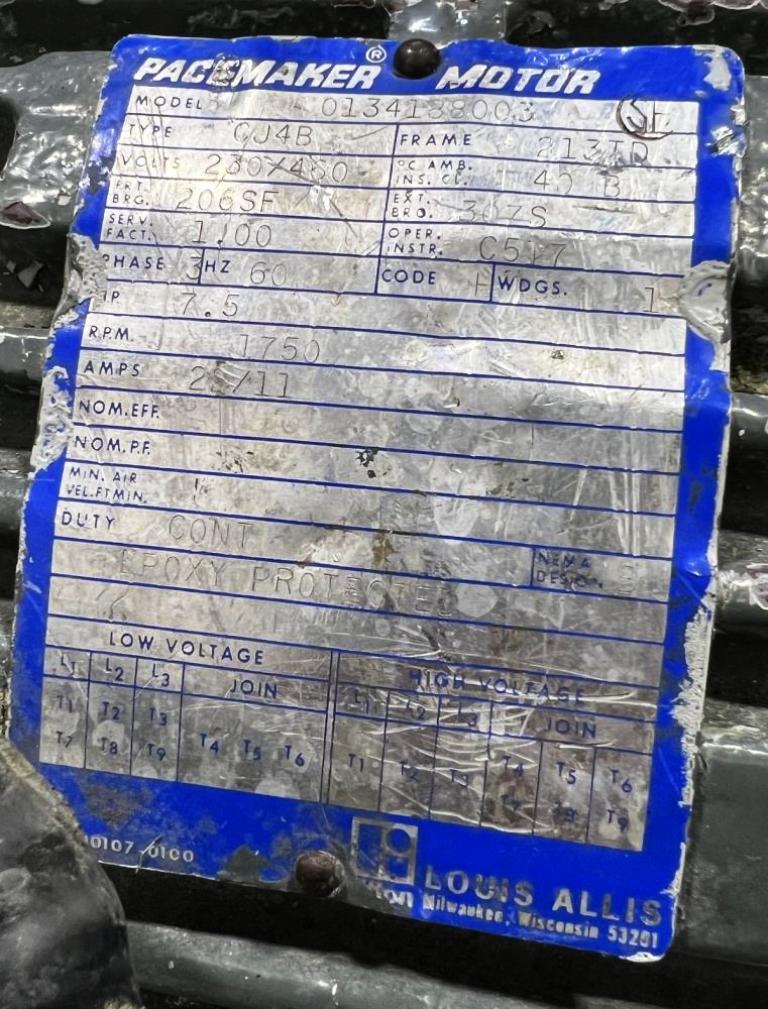 PACEMAKER® MOTOR
MODEL 0134188003 SE
TYPE CJ4B FRAME 213TD
VOLTS 230/460 °C AMB. INS. CL. 40 B
FRT. BRG. 206SF EXT. BRG. 307S
SERV. FACT. 1.00 OPER. INSTR. C517
PHASE 3 HZ 60 CODE H WDGS. 1
HP 7.5
R.P.M. 1750
AMPS /11
NOM.EFF.
NOM.P.F.
MIN. AIR VEL.FT.MIN.
DUTY CONT
EPOXY PROTECTED NEMA DESIGN
LOW VOLTAGE HIGH VOLTAGE
L1 L2 L3 JOIN L1 L2 L3 JOIN
T1 T2 T3 T4 T5 T6 T1 T2 T3 T4 T5 T6
T7 T8 T9 T7 T8 T9
0107-0100
LOUIS ALLIS
Milwaukee, Wisconsin 53201